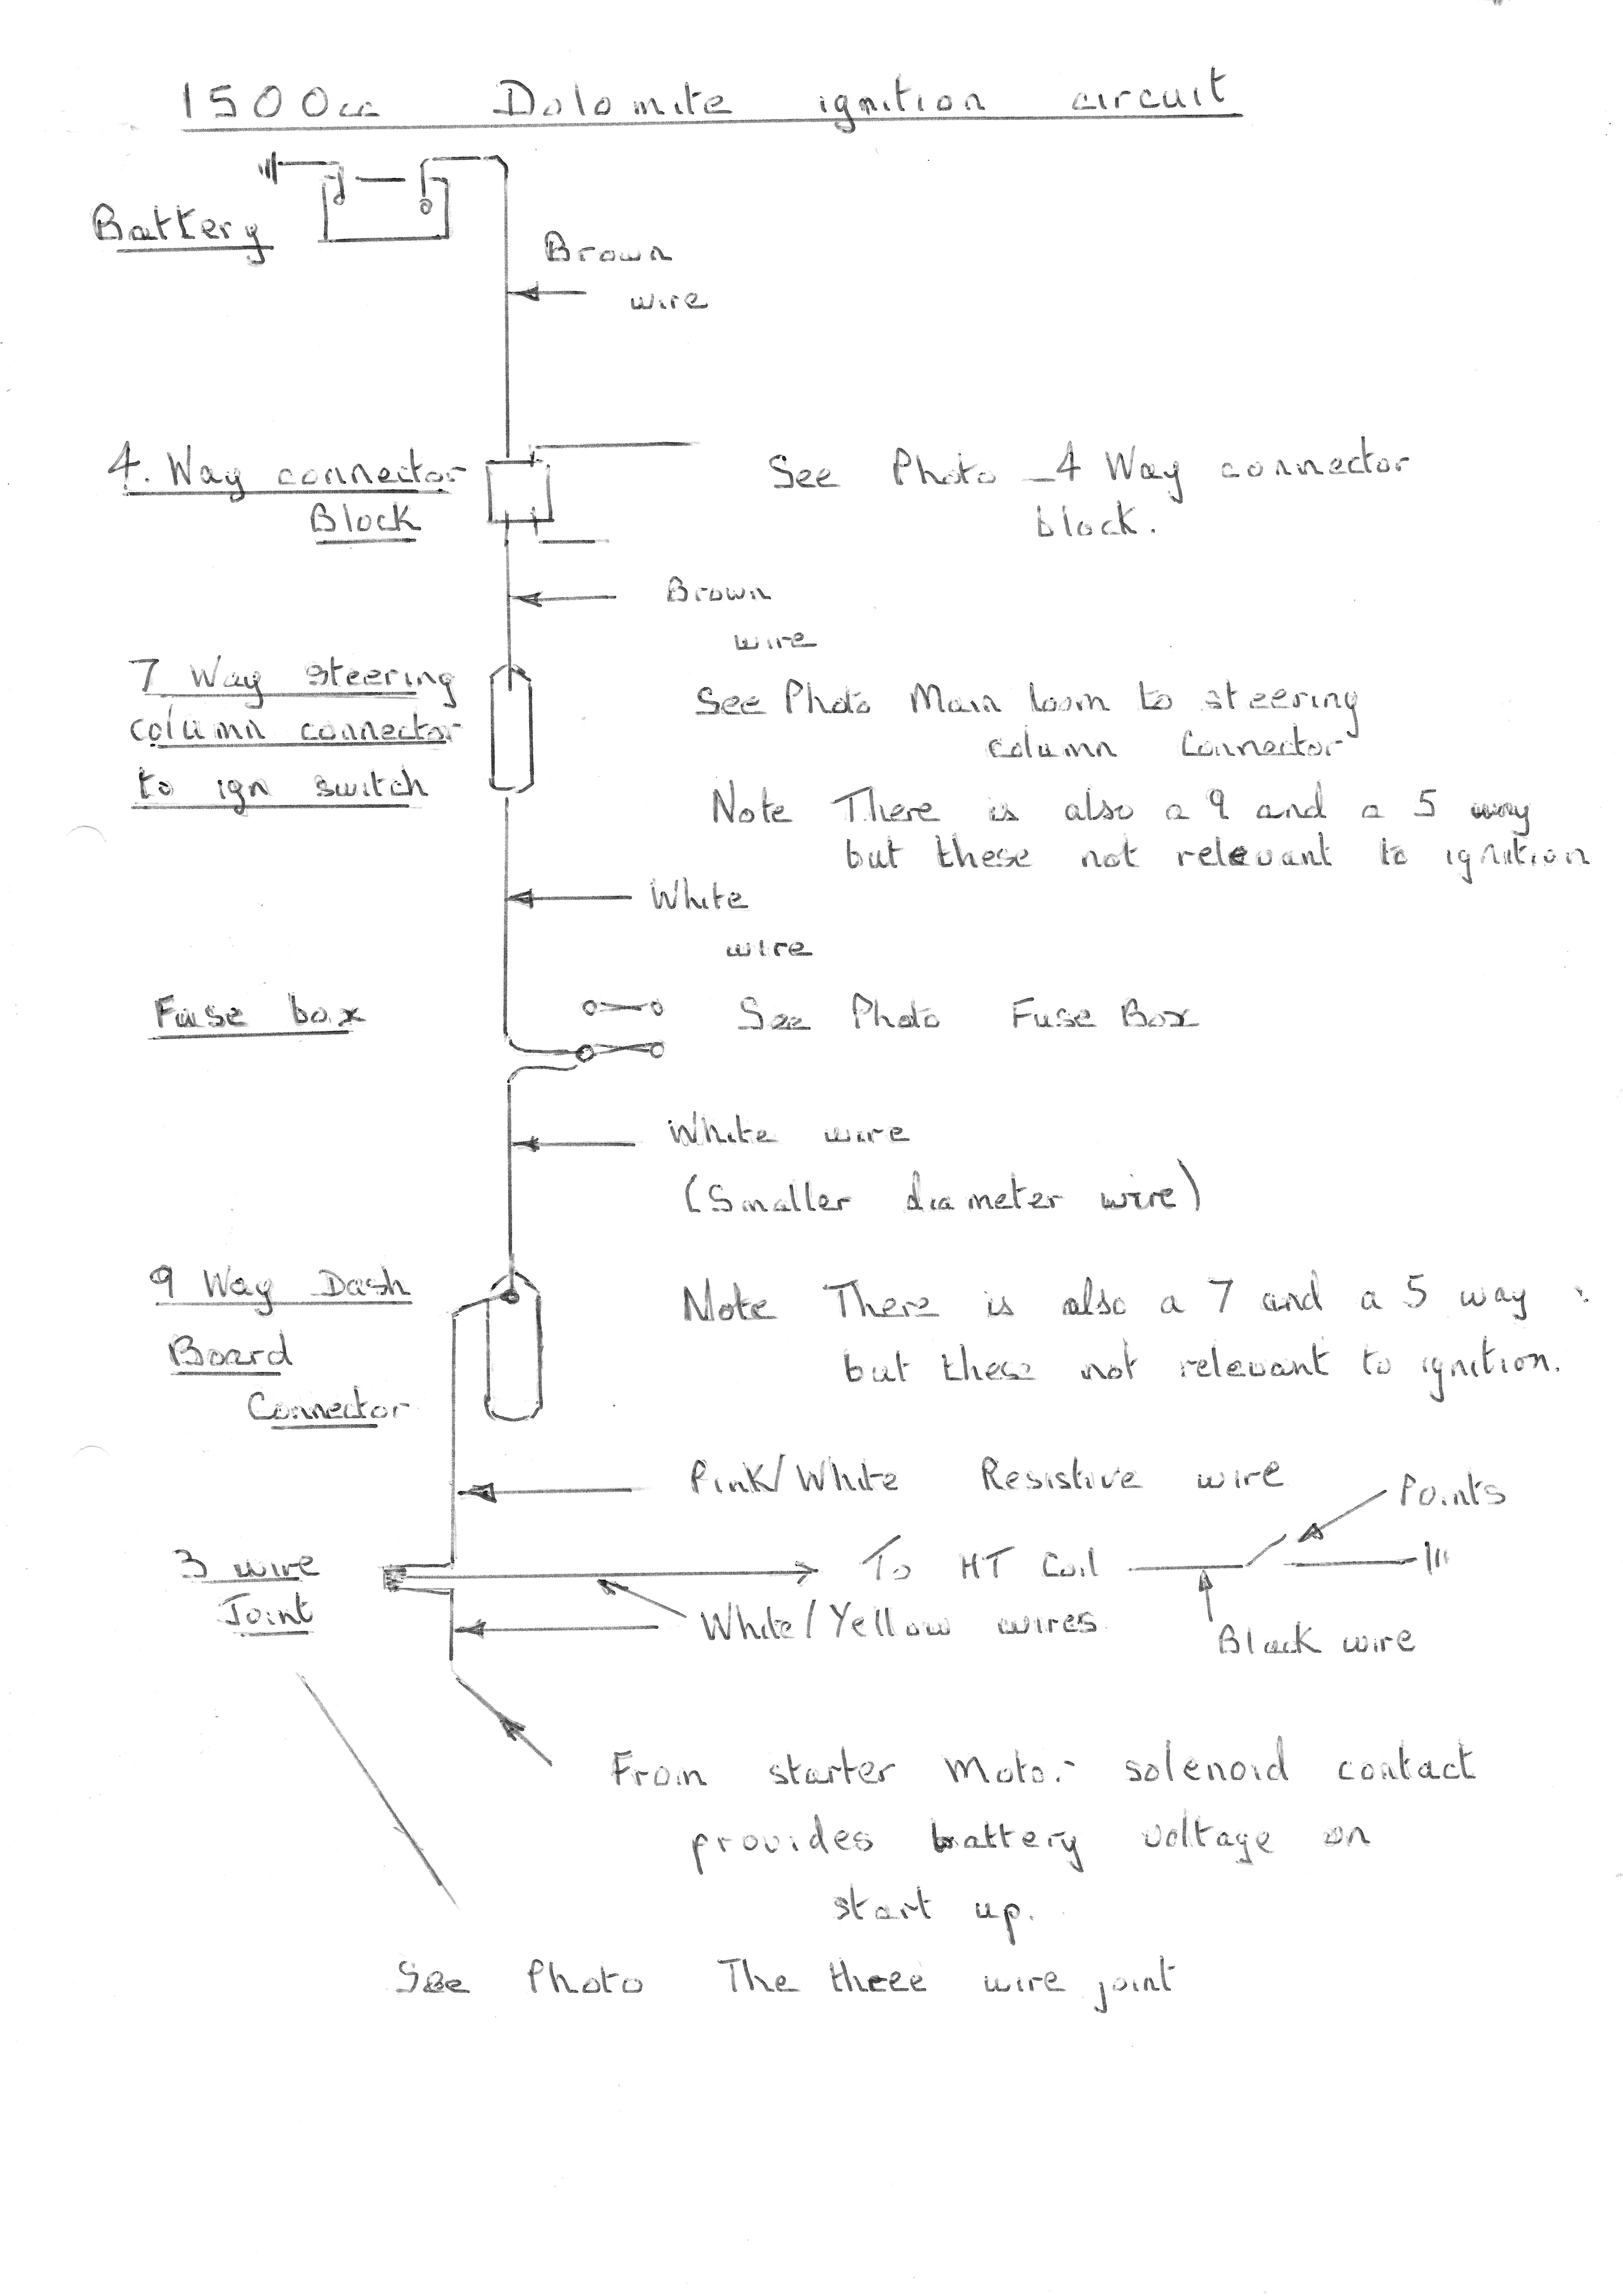 1500cc Dolomite ignition circuit
Battery
Brown
wire
4. Way connector
Block
See Photo - 4 Way connector
block.
Brown
wire
7 Way steering
column connector
to ign switch
See Photo Main loom to steering
column Connector
Note There is also a 9 and a 5 way
but these not relevant to ignition
White
wire
Fuse box
See Photo Fuse Box
White wire
(Smaller diameter wire)
9 Way Dash
Board
Connector
Note There is also a 7 and a 5 way
but these not relevant to ignition.
Pink/White Resistive wire
Points
3 wire
Joint
To HT Coil
White/Yellow wires
Black wire
From starter Motor solenoid contact
provides battery voltage on
start up.
See Photo The three wire joint